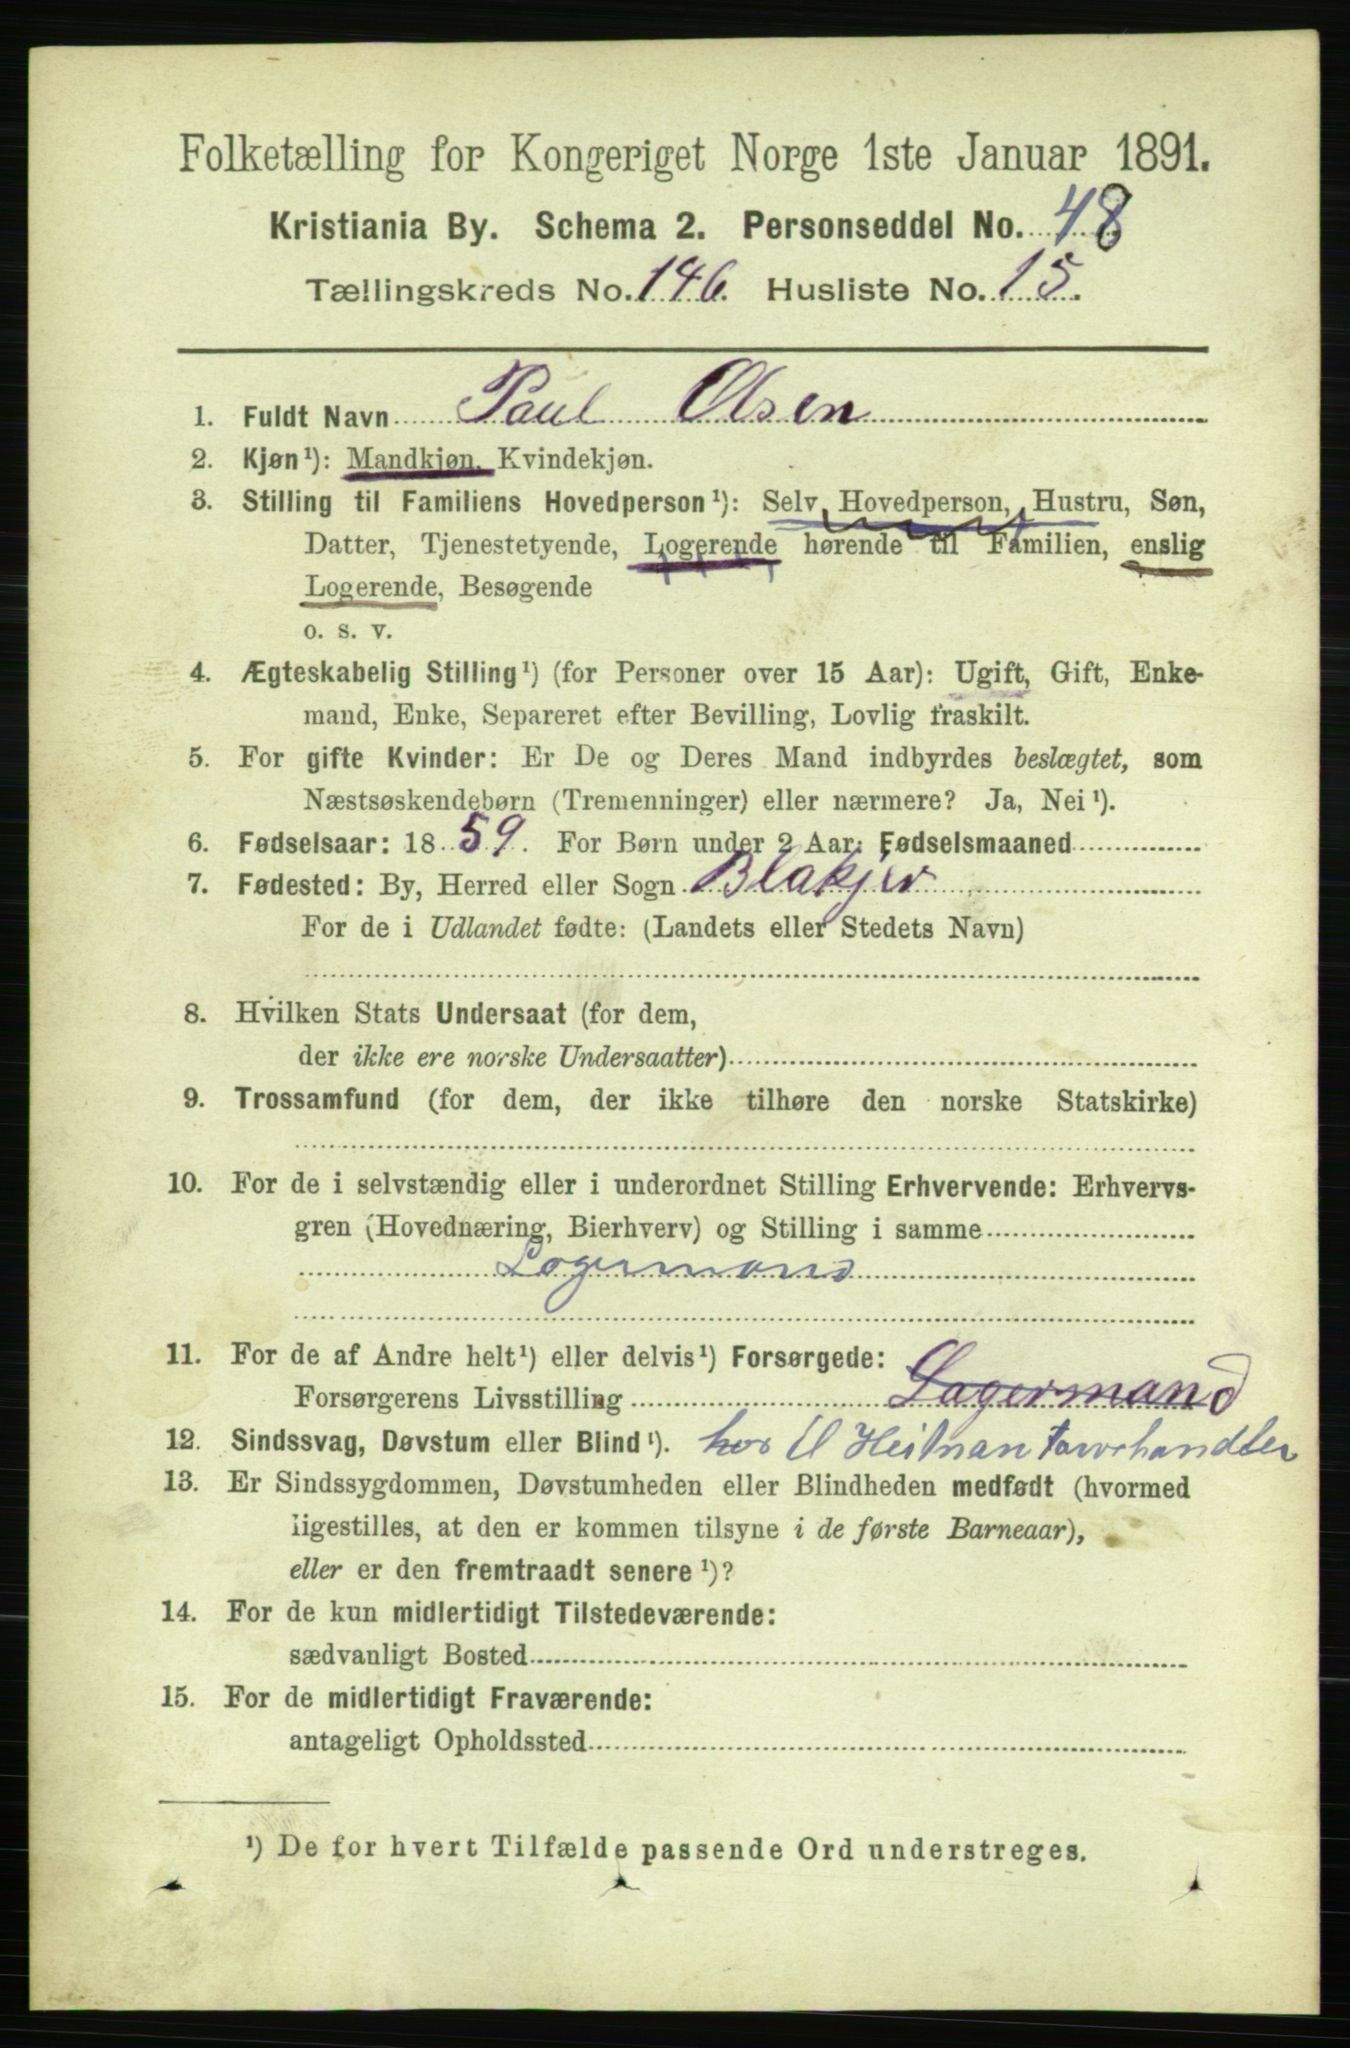 Folketælling for Kongeriget Norge 1ste Januar 1891.
Kristiania By. Schema 2. Personseddel No. 48
Tællingskreds No. 146. Husliste No. 15.
1. Fuldt Navn Paul Olsen
2. Kjøn¹): Mandkjøn, Kvindekjøn.
3. Stilling til Familiens Hovedperson¹): Selv Hovedperson, Hustru, Søn,
Datter, Tjenestetyende, Logerende hørende til Familien, enslig
Logerende, Besøgende
o. s. v.
4. Ægteskabelig Stilling¹) (for Personer over 15 Aar): Ugift, Gift, Enke-
mand, Enke, Separeret efter Bevilling, Lovlig fraskilt.
5. For gifte Kvinder: Er De og Deres Mand indbyrdes beslægtet, som
Næstsøskendebørn (Tremenninger) eller nærmere? Ja, Nei¹).
6. Fødselsaar: 1859. For Børn under 2 Aar: Fødselsmaaned
7. Fødested: By, Herred eller Sogn Blakjer
For de i Udlandet fødte: (Landets eller Stedets Navn)
8. Hvilken Stats Undersaat (for dem,
der ikke ere norske Undersaatter)
9. Trossamfund (for dem, der ikke tilhøre den norske Statskirke)
10. For de i selvstændig eller i underordnet Stilling Erhvervende: Erhvervs-
gren (Hovednæring, Bierhverv) og Stilling i samme
Lagermand
11. For de af Andre helt¹) eller delvis¹) Forsørgede:
Forsørgerens Livsstilling Lagermand
12. Sindssvag, Døvstum eller Blind¹). hos Heitman
13. Er Sindssygdommen, Døvstumheden eller Blindheden medfødt (hvormed
ligestilles, at den er kommen tilsyne i de første Barneaar),
eller er den fremtraadt senere¹)?
14. For de kun midlertidigt Tilstedeværende:
sædvanligt Bosted
15. For de midlertidigt Fraværende:
antageligt Opholdssted
¹) De for hvert Tilfælde passende Ord understreges.